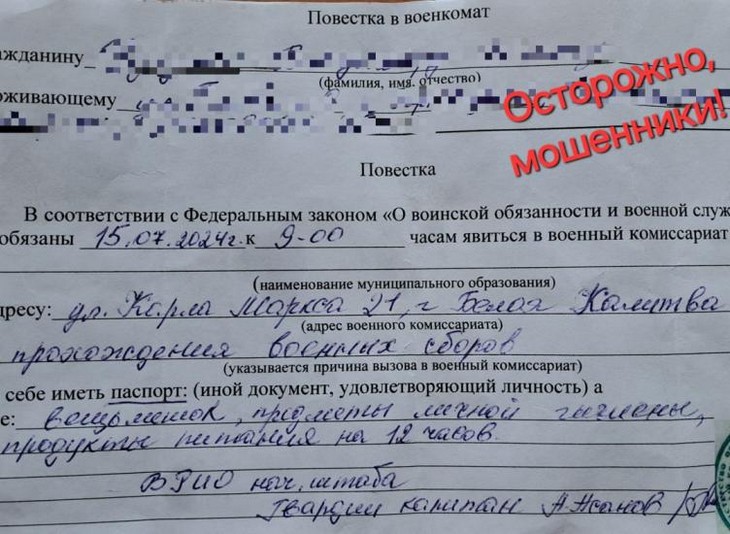 Повестка в военкомат
ажданину
(фамилия, имя, отчество)
оживающему
Осторожно,
мошенники!
Повестка
В соответствии с Федеральным законом «О воинской обязанности и военной служ
обязаны 15.07.2024г. к 9-00 часам явиться в военный комиссариат
(наименование муниципального образования)
дресу: ул. Карла Маркса 21, г Белая Калитва
(адрес военного комиссариата)
прохождения военных сборов
(указывается причина вызова в военный комиссариат)
себе иметь паспорт: (иной документ, удовлетворяющий личность) а
е: вещьмешок, предметы личной гигиены,
продукты питания на 12 часов.
ВРИО нач. штаба
Гвардии капитан А.Асанов